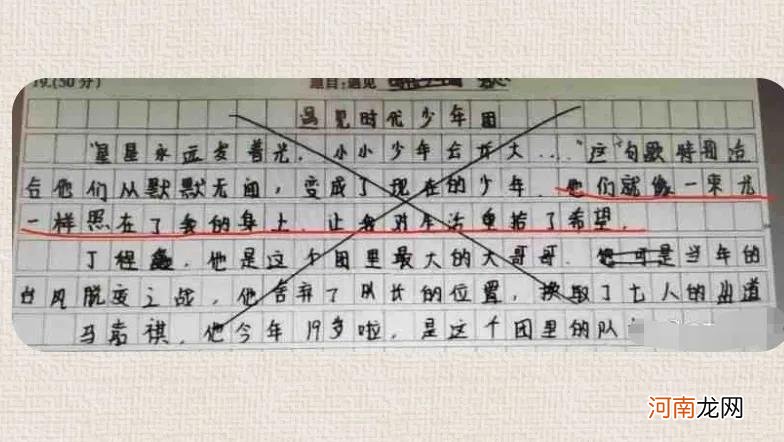 19.(50分) 题目:遇见
遇见时代少年团
"星星永远发着光,小小少年会好大..."这句歌特别适
合他们从默默无闻,变成了现在的少年.他们就像一束光
一样照在了我的身上.让我对生活重拾了希望.
丁程鑫,他是这个团里最大的大哥哥.他可是当年的
台风脱变之战,他舍弃了队长的位置,换取了七人的出道
马嘉祺,他今年19多啦,是这个团里的队
河南龙网